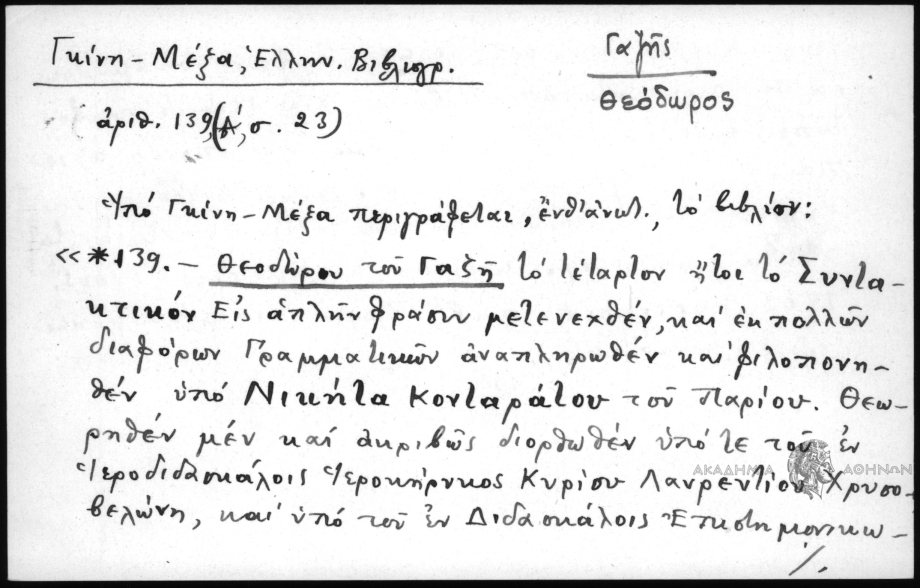 Γκίνη - Μέξα, Ἑλλην. Βιβλιογρ.
Γαζῆς
Θεόδωρος
ἀριθ. 139, (Α΄, σ. 23)
Ὑπό Γκίνη - Μέξα περιγράφεται, ἔνθ' ἀνωτ., τό βιβλίον:
«*139. - Θεοδώρου τοῦ Γαζῆ τό τέταρτον ἤτοι τό Συντα-
κτικόν Εἰς ἁπλῆν φράσιν μετενεχθέν, καί ἐκ πολλῶν
διαφόρων Γραμματικῶν ἀναπληρωθέν καί φιλοπονη-
θέν ὑπό Νικήτα Κονταράτου τοῦ Παρίου. Θεω-
ρηθέν μέν καί ἀκριβῶς διορθωθέν ὑπό τε τοῦ ἐν
Ἱεροδιδασκάλοις Ἱεροκήρυκος Κυρίου Λαυρεντίου Χρυσο-
βελώνη, καί ὑπό τοῦ ἐν Διδασκάλοις Ἐπιστημονικω-
./.
ΑΚΑΔΗΜΙΑ ΑΘΗΝΩΝ